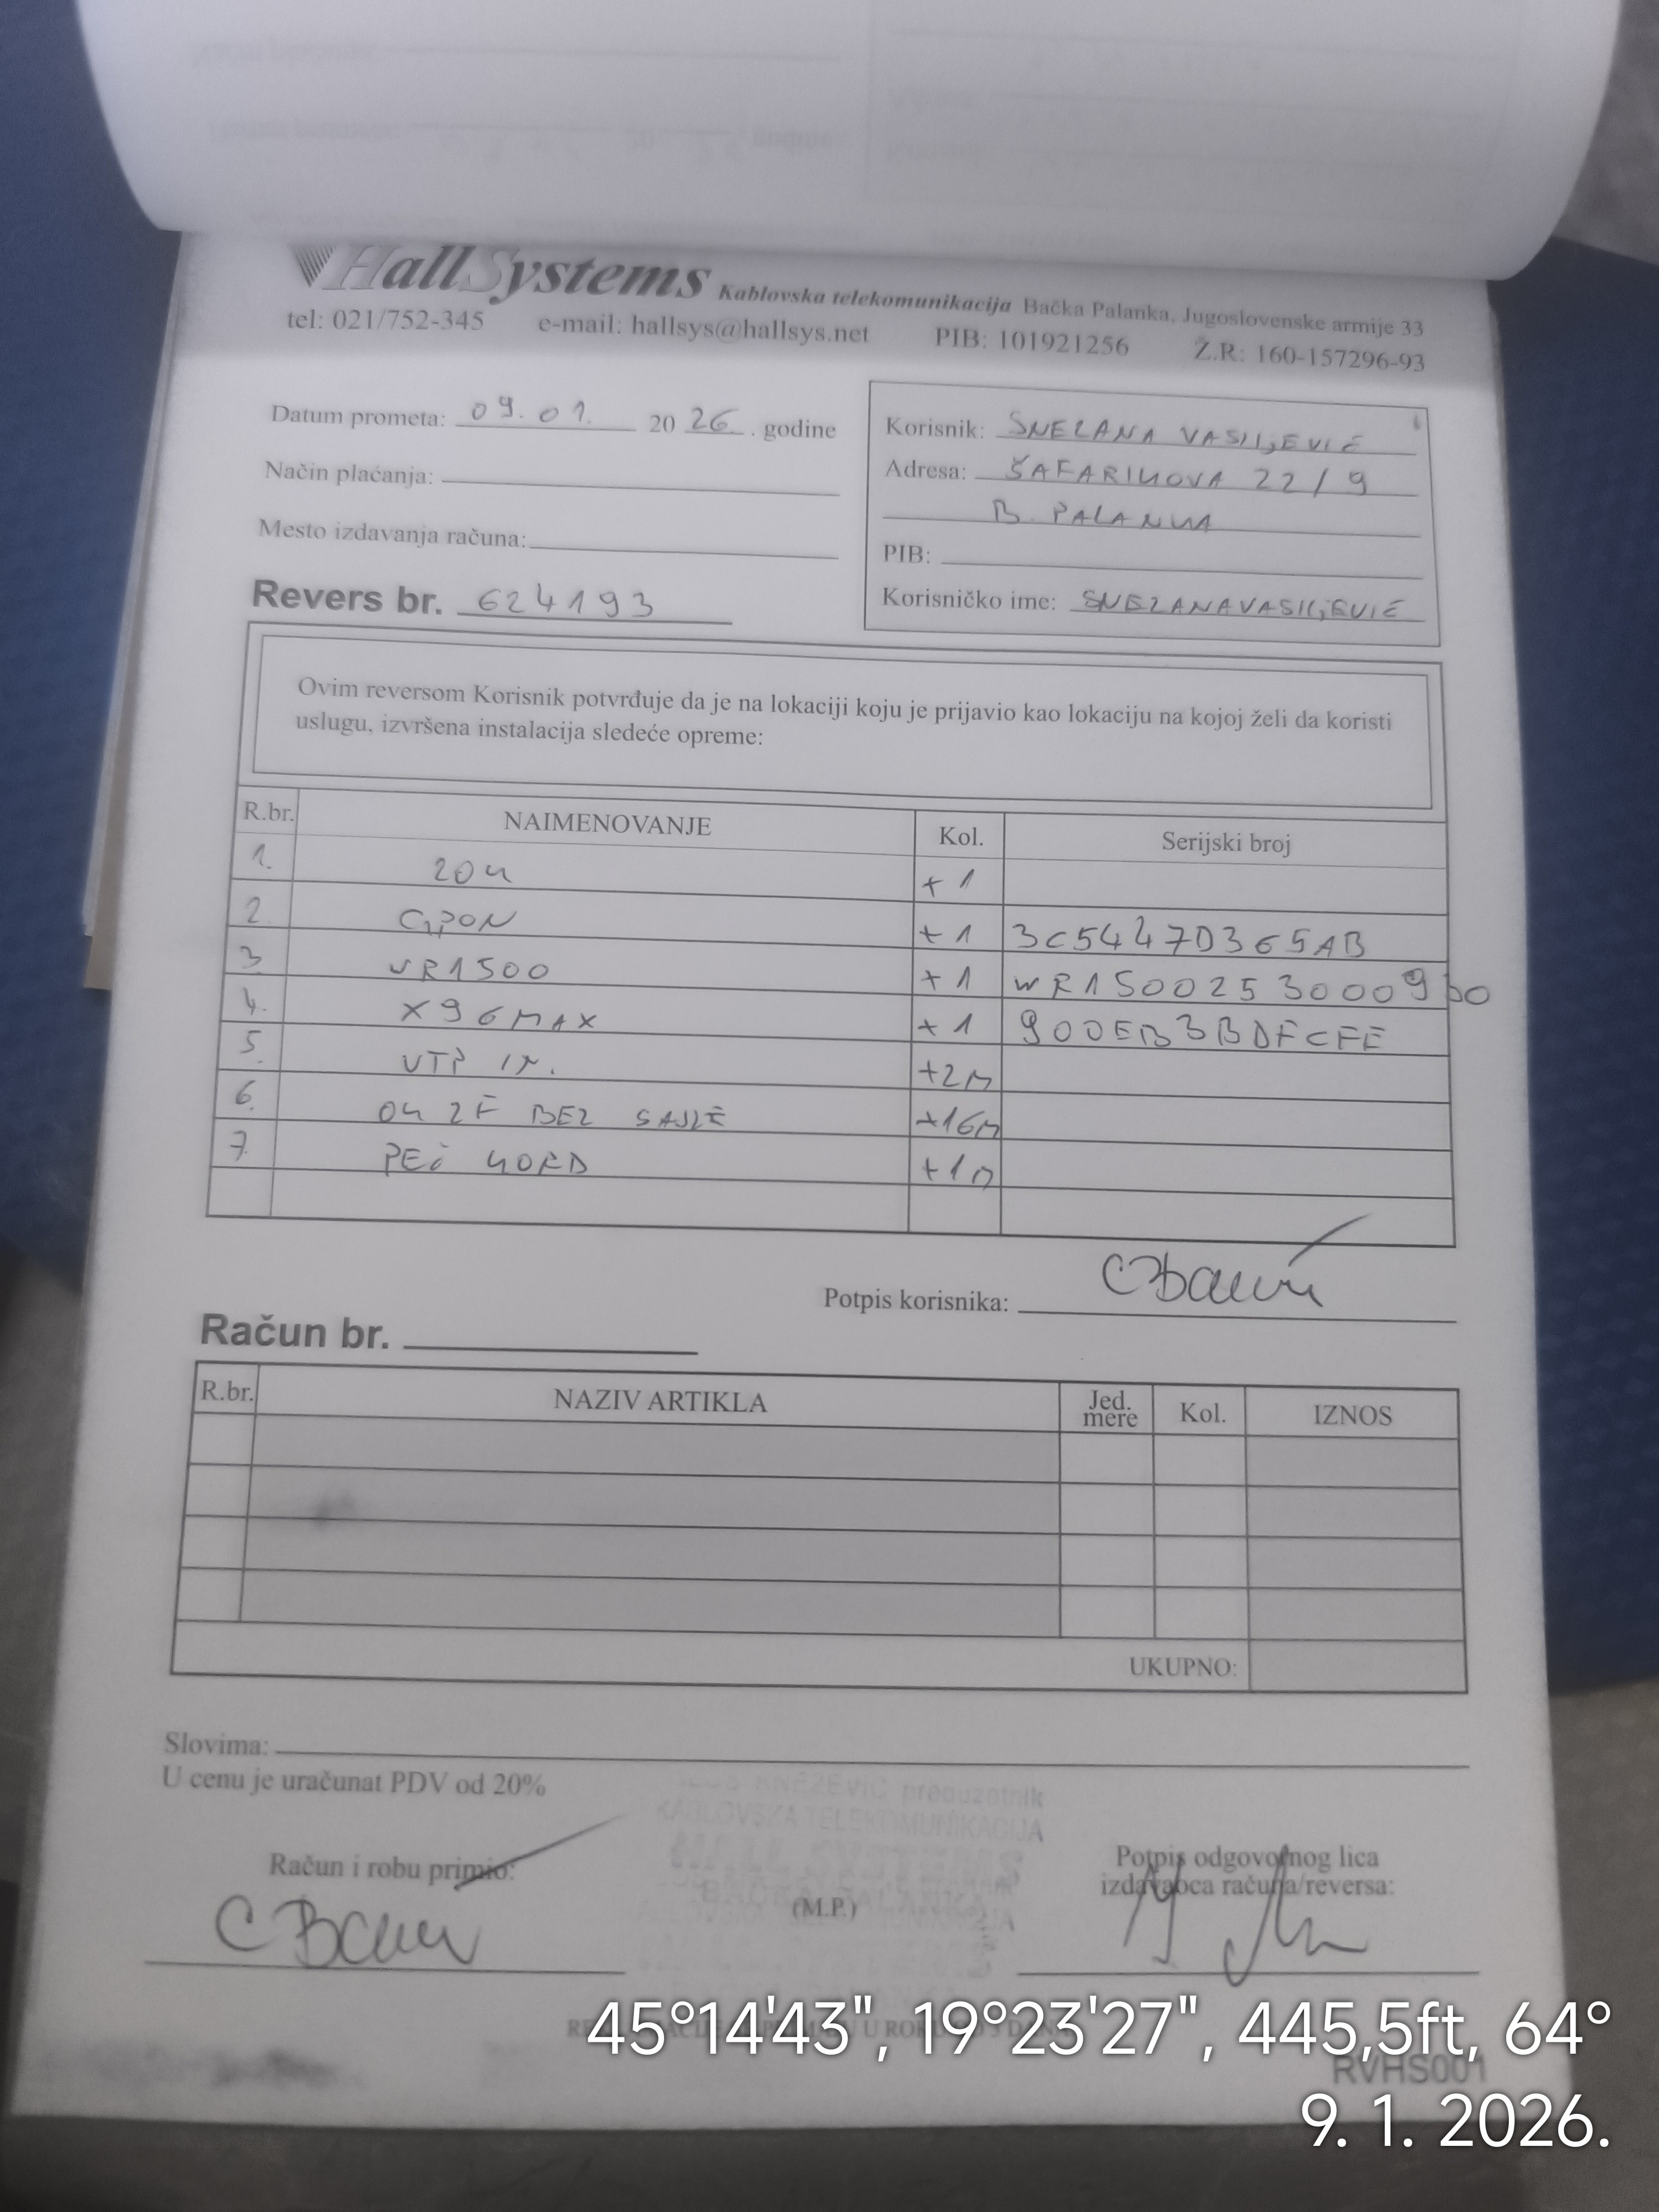 HallSystems Kablovska telekomunikacija Bačka Palanka, Jugoslovenske armije 33
tel: 021/752-345 e-mail: hallsys@hallsys.net PIB: 101921256 Ž.R: 160-157296-93
Datum prometa: 09.01. 2026. godine
Način plaćanja:
Mesto izdavanja računa:
Revers br. 624193
Korisnik: SNEZANA VASILJEVIĆ
Adresa: ŠAFARIKOVA 22/9
B. PALANKA
PIB:
Korisničko ime: SNEZANAVASILJEVIĆ
Ovim reversom Korisnik potvrđuje da je na lokaciji koju je prijavio kao lokaciju na kojoj želi da koristi
uslugu, izvršena instalacija sledeće opreme:
R.br. NAIMENOVANJE Kol. Serijski broj
1. ZOK +1
2. GPON +1 3C5447D365AB
3 WR1500 +1 WR1500253000930
4. X96MAX +1 900EB3BDFCFE
5. UTP +2M
6. OK 2F BEZ SAJLE +16M
7. KORD +1M
Potpis korisnika:
Račun br.
R.br. NAZIV ARTIKLA Jed. mere Kol. IZNOS
UKUPNO:
Slovima:
U cenu je uračunat PDV od 20%
KNEŽEVIĆ preduzetnik
KABLOVSKA TELEKOMUNIKACIJA
HALL SYSTEMS
BAČKA PALANKA
Račun i robu primio:
(M.P.)
Potpis odgovornog lica
izdavaoca računa/reversa:
45°14'43", 19°23'27", 445,5ft, 64°
RVHS001
9. 1. 2026.